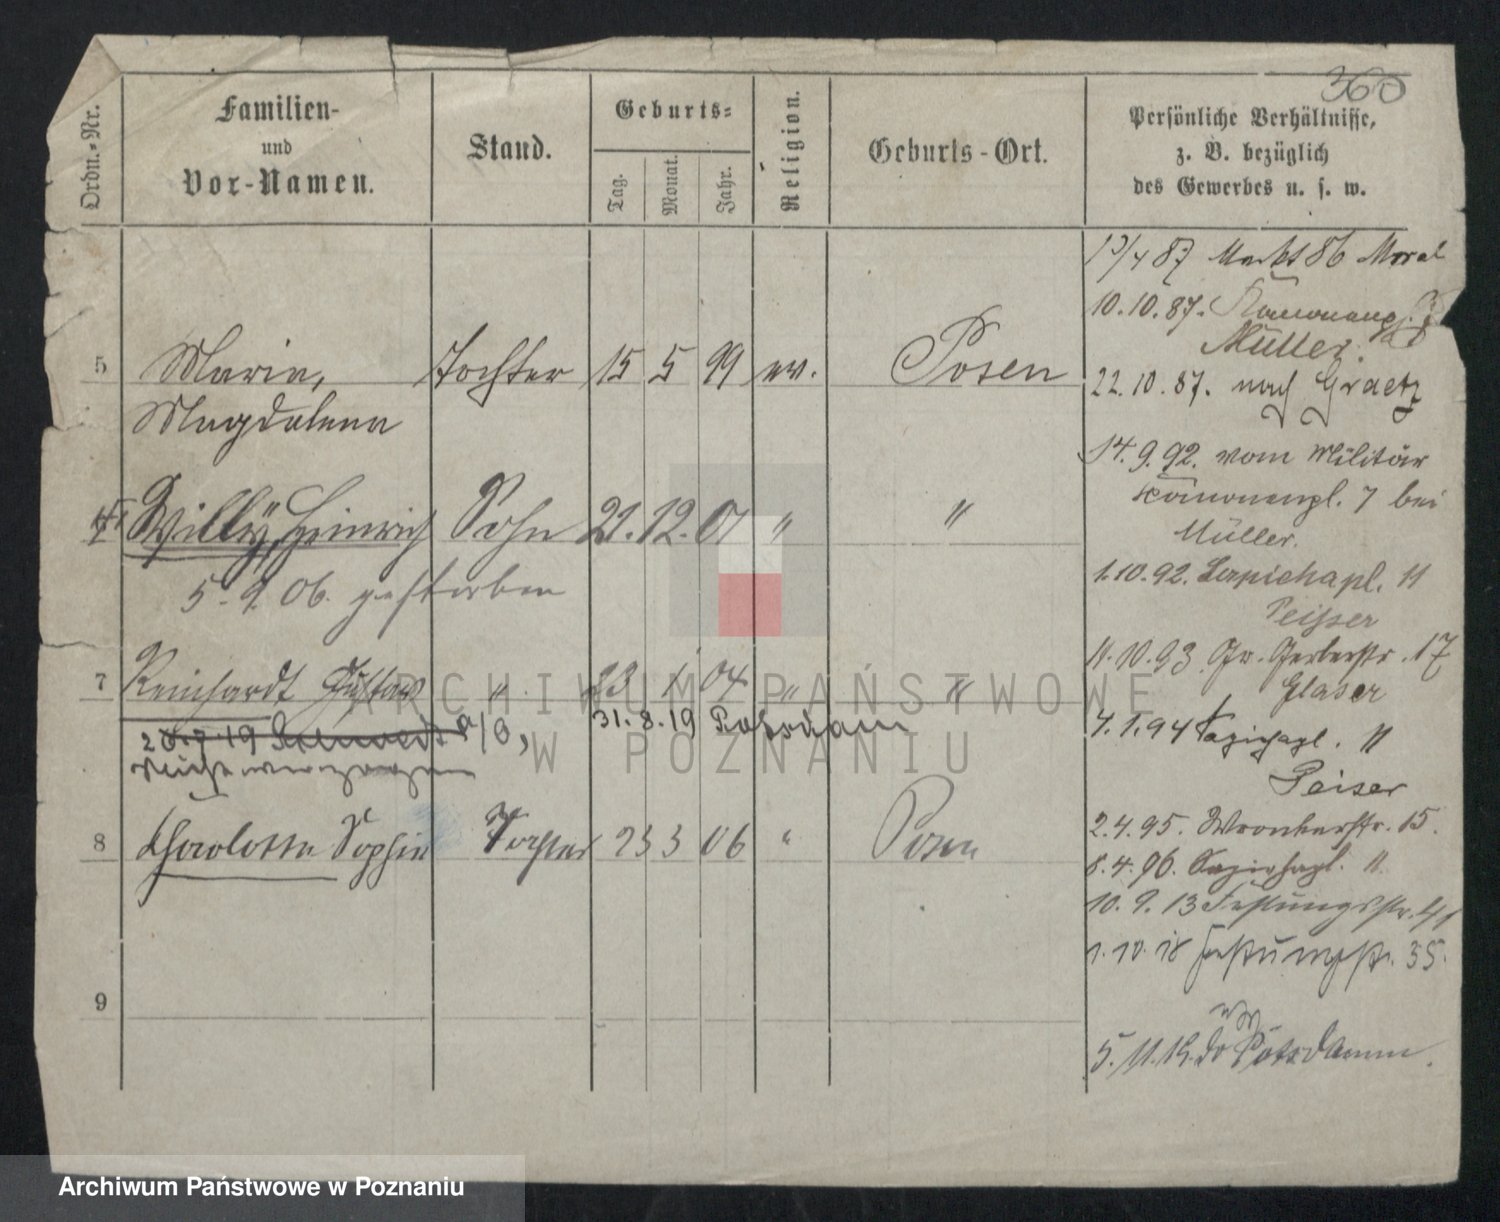 360
Ordn.-Nr.
Familien-
und
Vor-Namen.
Stand.
Geburts-
Tag.
Monat.
Jahr.
Religion.
Geburts-Ort.
Persönliche Verhältnisse,
z. B. bezüglich
des Gewerbes u. s. w.
5 Marie, Tochter 15 5 99 ev. Posen
Magdalena
Willy, Heinrich Sohn 21. 12. 01 " "
5. 9. 06. gestorben
7 Reinhardt Gustav " 23 1 04 " "
31. 8. 19 Potsdam
a/O,
8 Charlotte Sophie Tochter 23 3 06 " Posen
9
87 Markt 86 Moral
10.10.87.
Müller.
22.10.87. nach Graetz
14.9.92. vom Militär
7 bei
Müller.
1.10.92. Sapiehapl. 11
Peisser
11.10.93 Gr. Gerberstr. 17
Glaser
4.1.94 Sapiehapl. 11
Peiser
2.4.95. Wronkerstr. 15.
8.4.96. Sapiehapl. 11.
10. 9. 13 Festungsstr.
1. 10. 18 Festungsstr. 35.
Potsdam.
ARCHIWUM PAŃSTWOWE
W POZNANIU
Archiwum Państwowe w Poznaniu